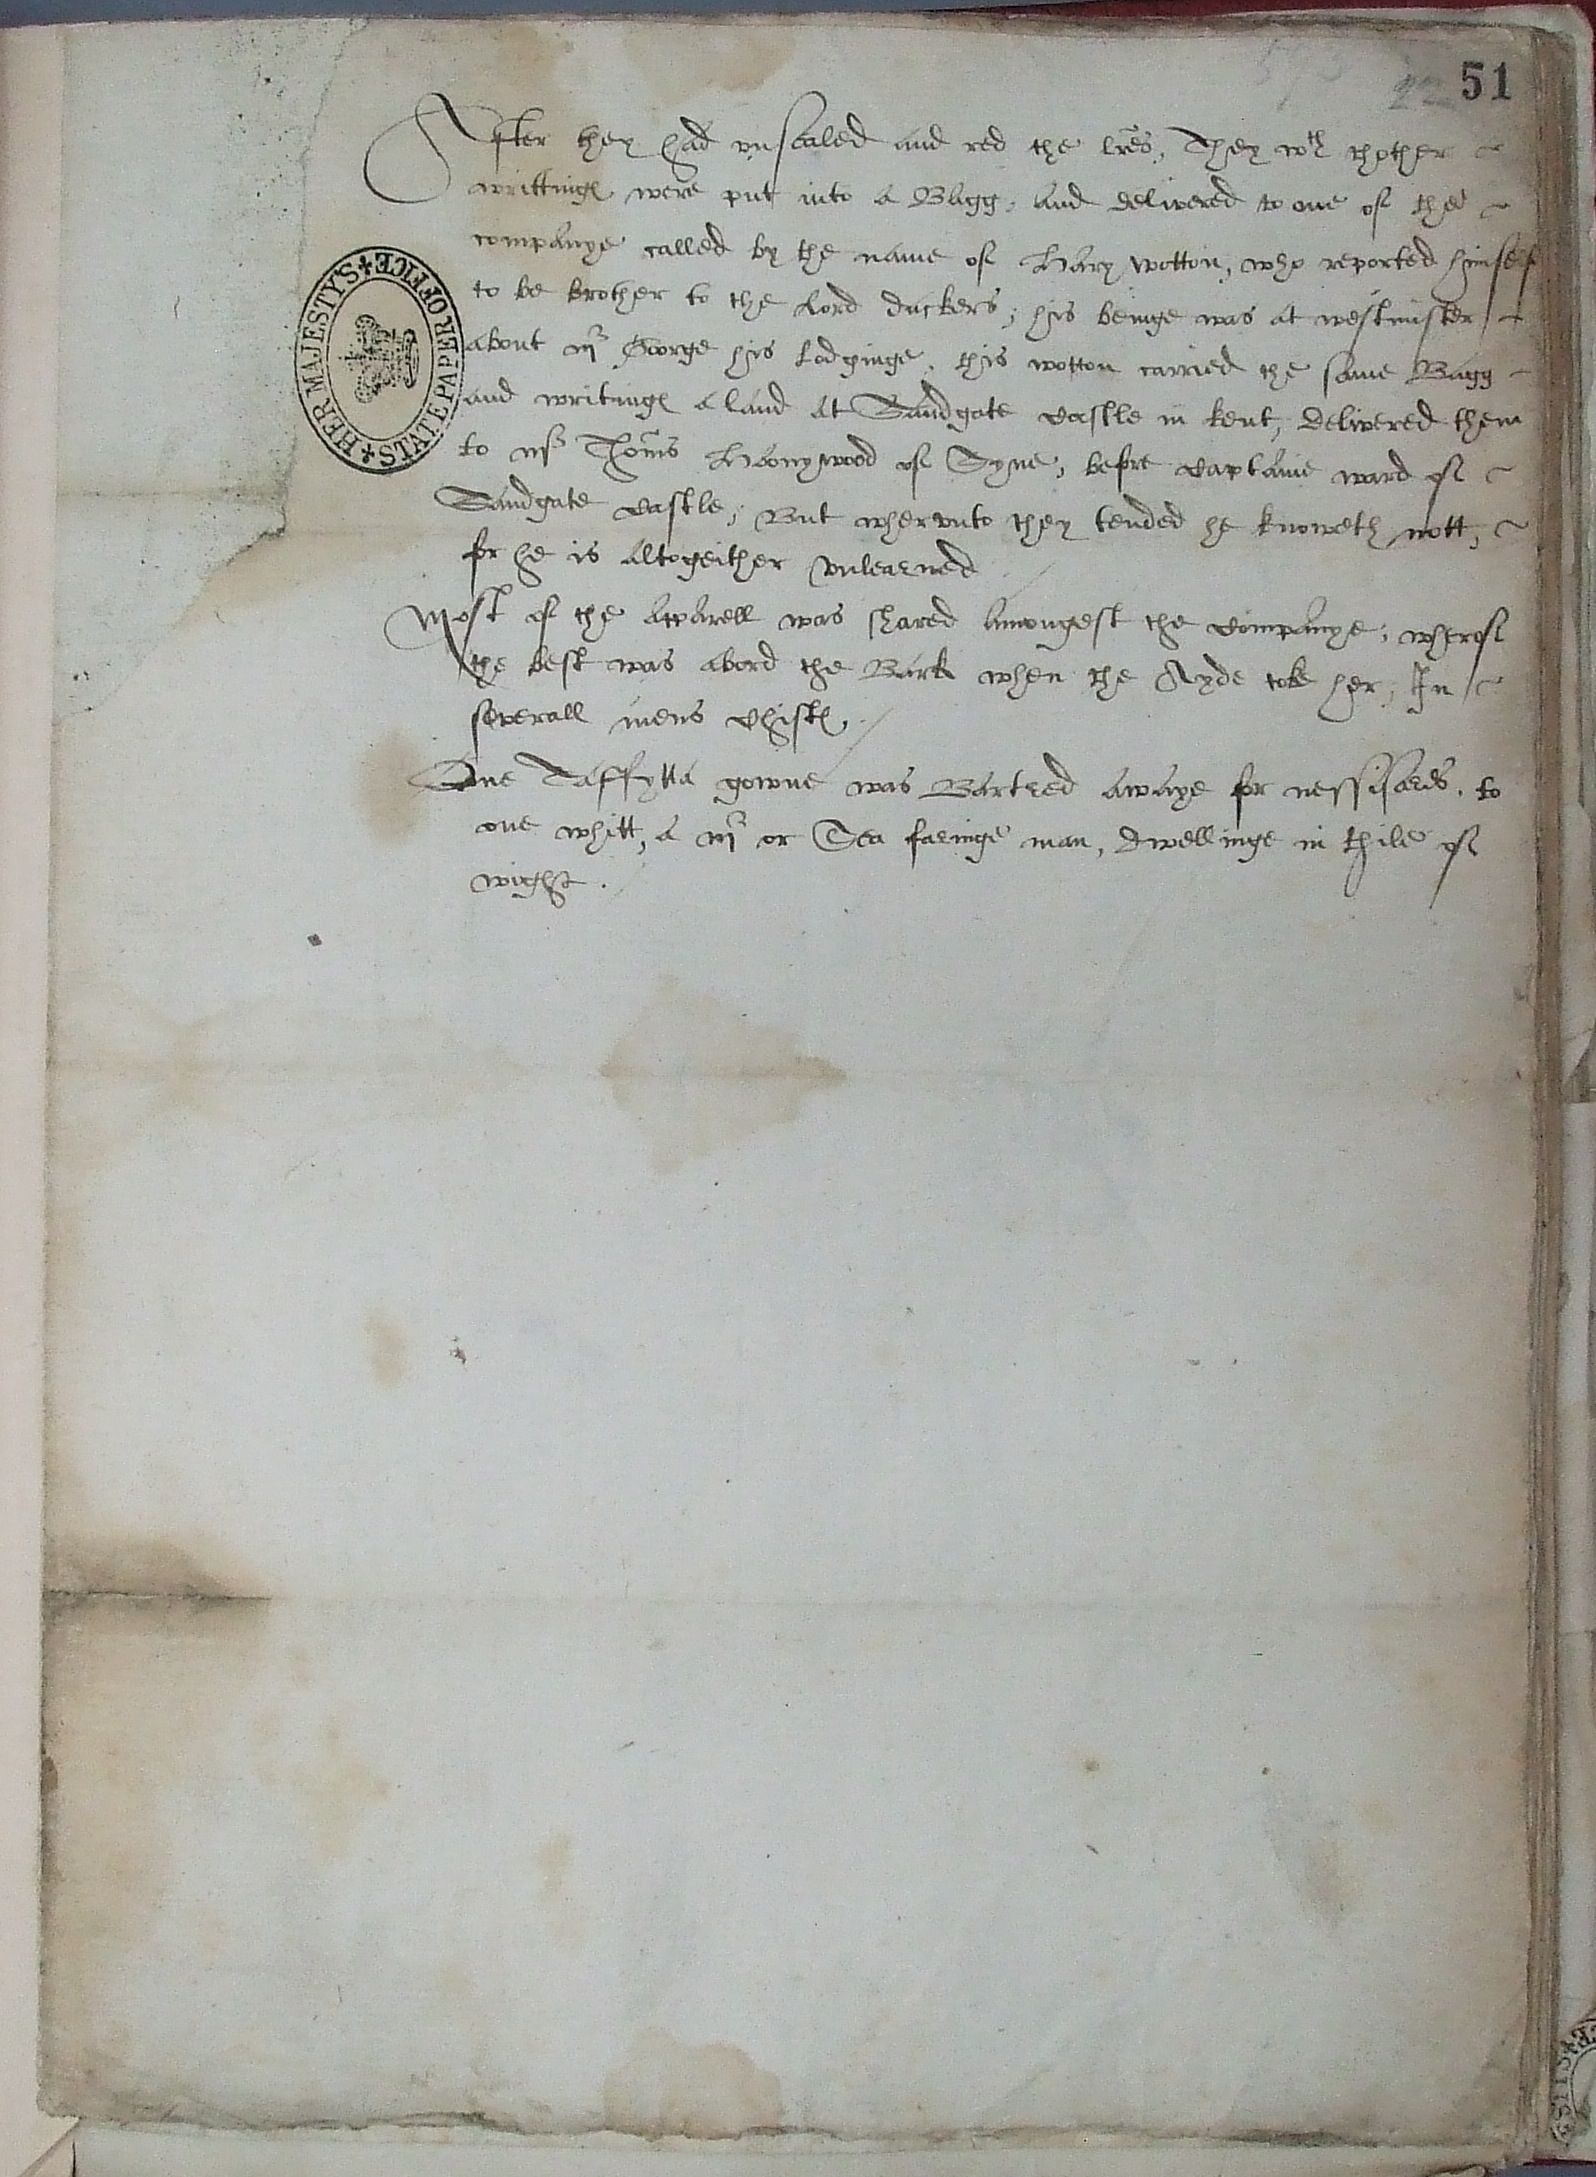 51
After they had vnsealed and red the lres, They wth thother
writtings were put into a Bagg, and delivered to one of the
companye called by the name of Hary wotton, who reported himself
to be brother to the Lord dackers; his beinge was at westmister
about mr George his lodginge, this wotton carried the same Bagg
and writings a land at Sandgate castle in kent, delivered them
to mr Thoms Honywood of Syne, before captaine ward of
Sandgate castle; But whervnto they tended he knoweth nott,
for he is altogeither vnlearned
Most of the apparell was shared amongest the companye, wherof
the best was abord the Bark when the Ayde toke her, In
severall mens chists,
One Taffytta gowne was Bartred awaye for nessisaries, to
one whitt, a mr or Sea faringe man, dwellinge in thile of
wight.
HER MAJESTY'S STATE PAPER OFFICE